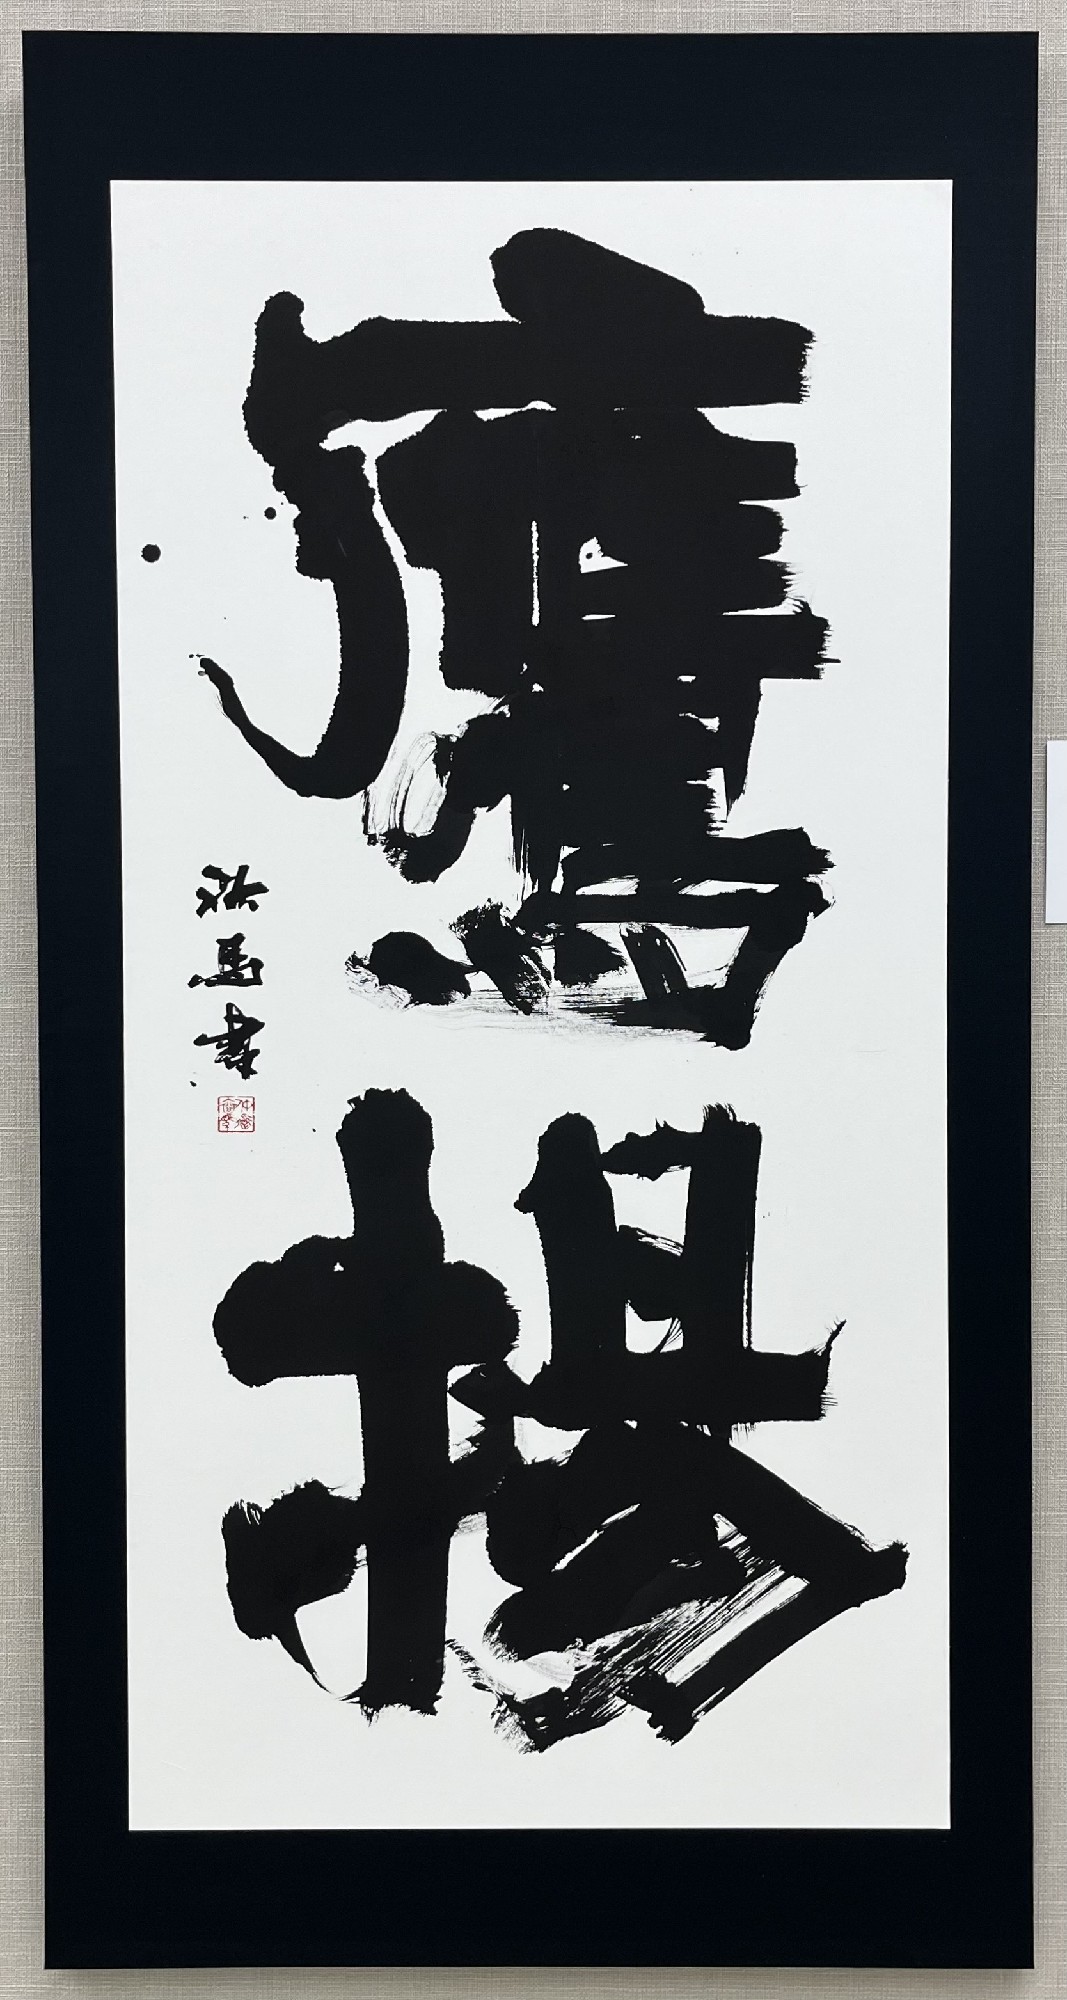 鷹揚
馬書